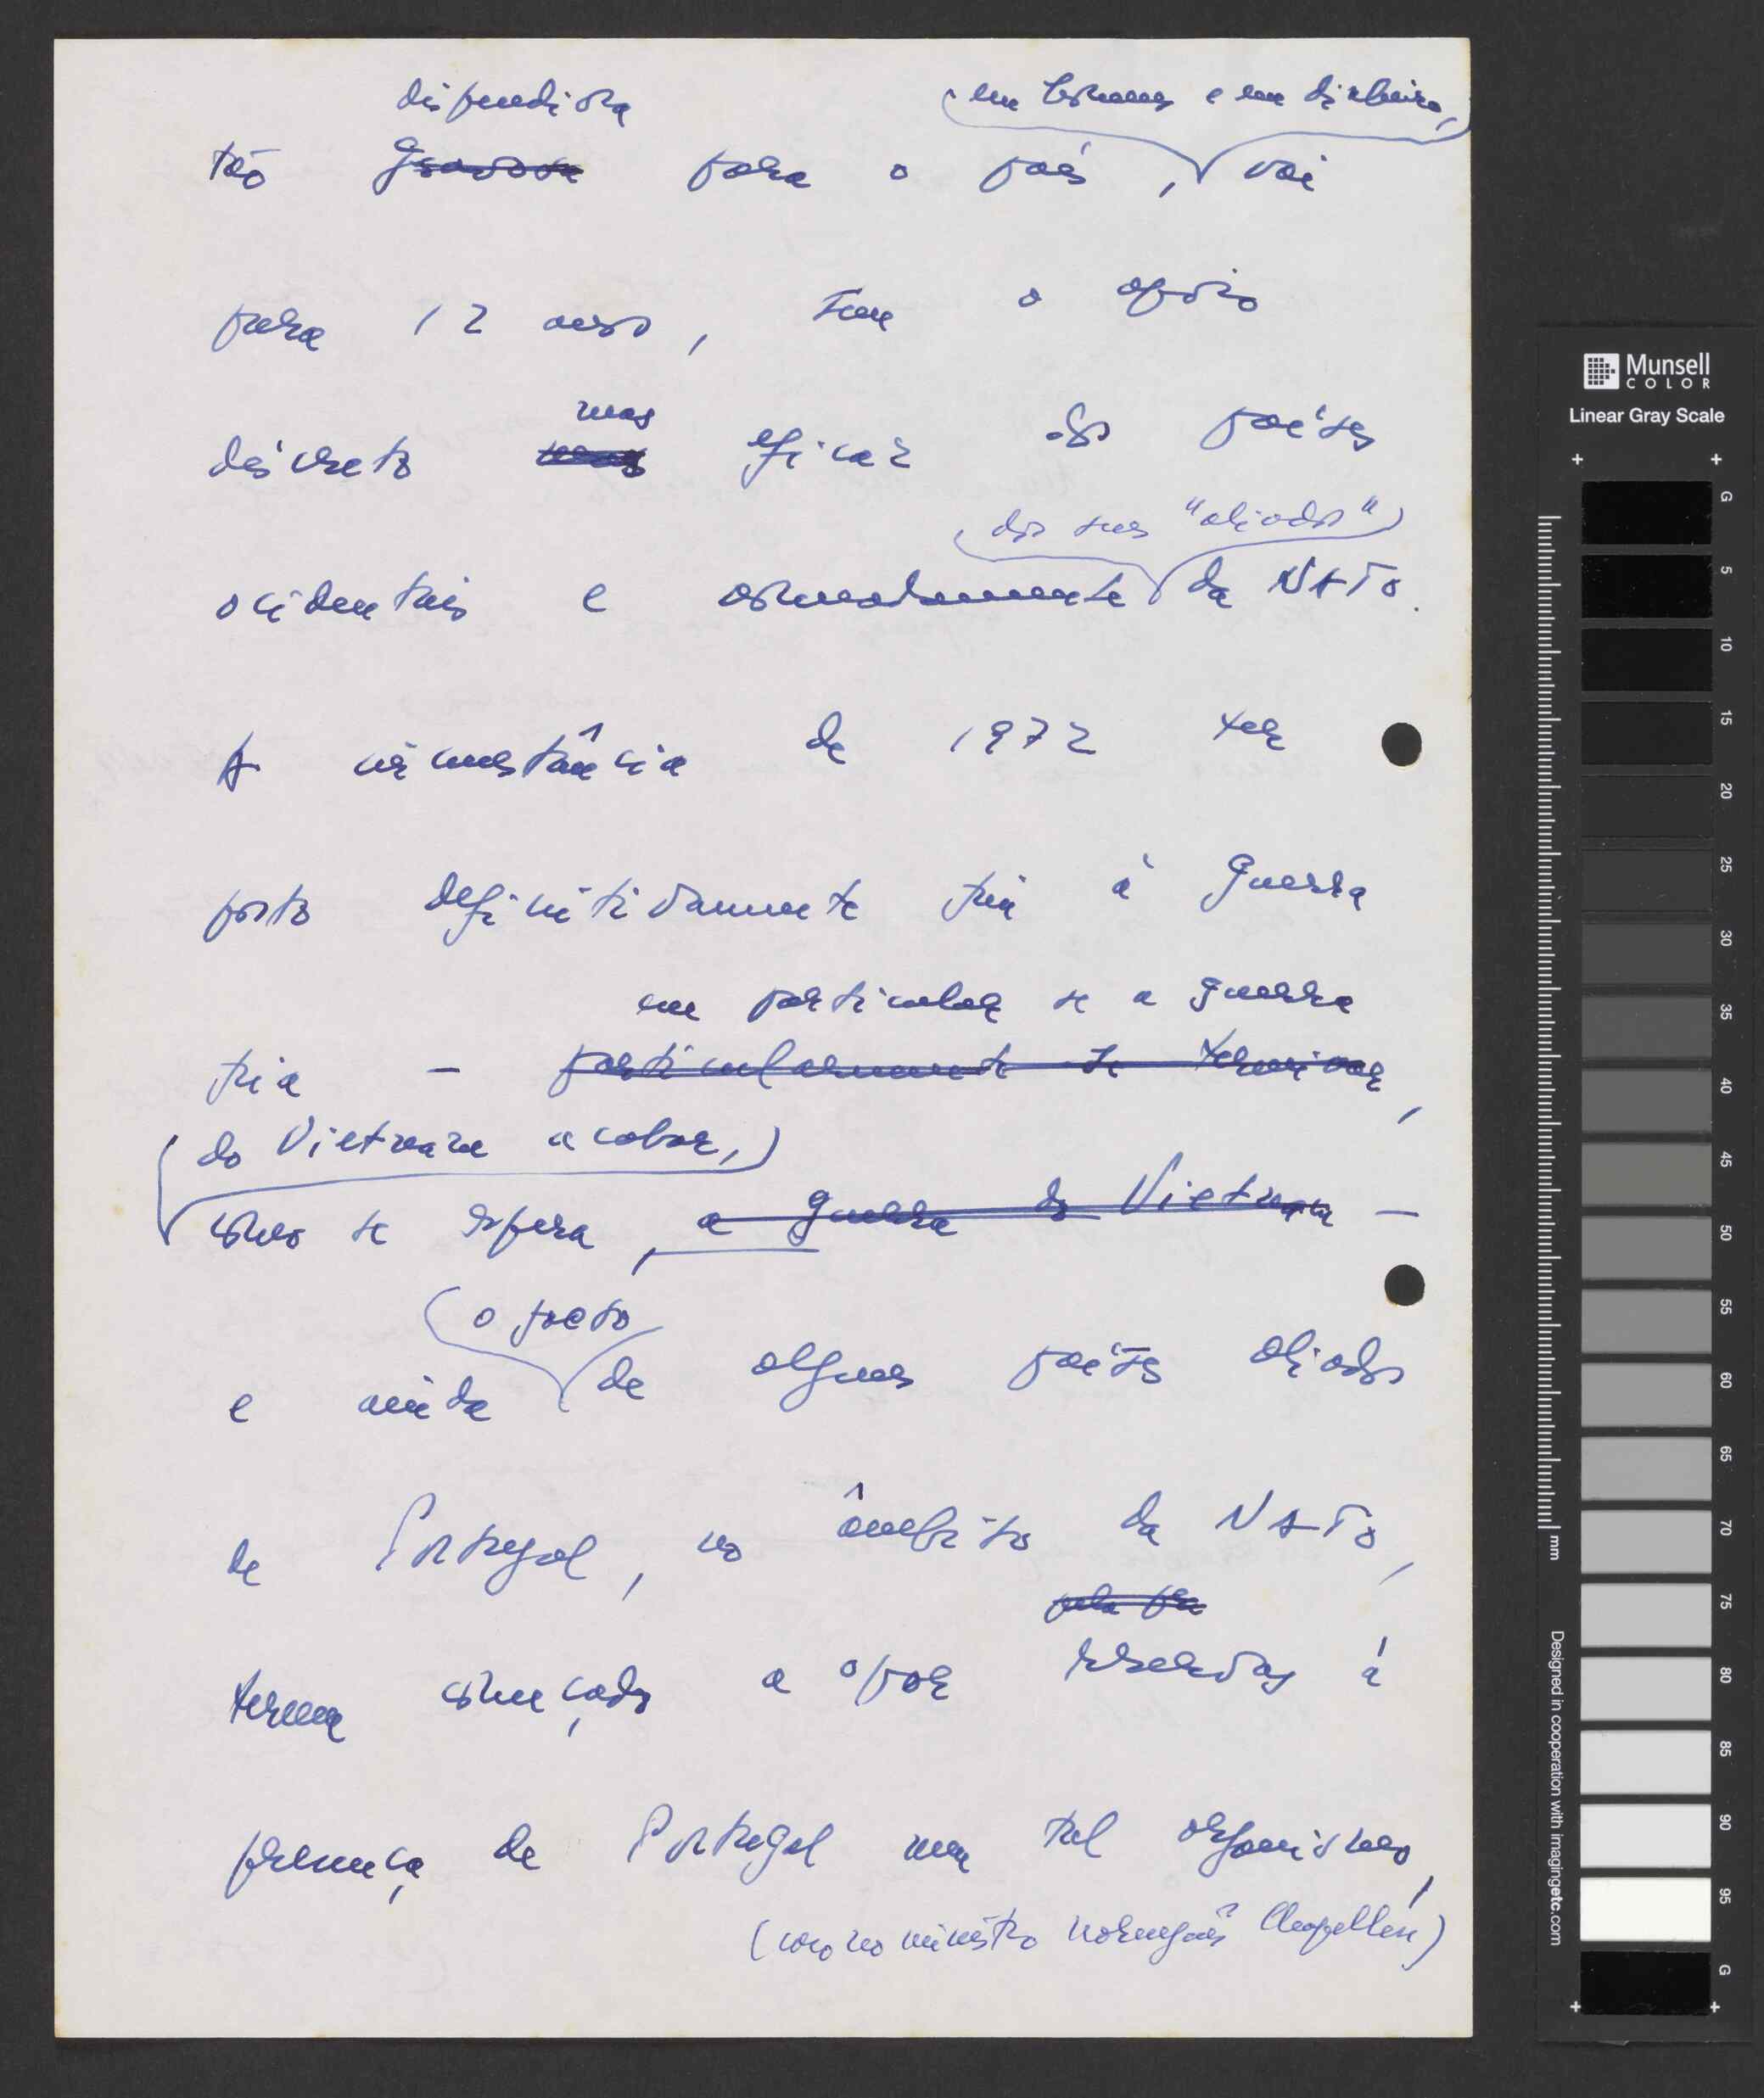 dispendiosa (em homens e em dinheiro,)
tão gravosa para o país, vai
para 12 anos, tem o apoio
mas
discreto mas eficaz dos países
(dos seus "aliados")
ocidentais e nomeadamente da NATO.
A circunstância de 1972 ter
posto definitivamente fim à guerra
em particular se a guerra
fria – particularmente se terminar,
(do Vietnam acabar,)
como se espera, a guerra do Vietnam –
(o facto
e ainda de alguns países aliados
de Portugal, no âmbito da NATO,
pela pre
terem começado a opor reservas à
presença de Portugal num tal organismo,
(como o ministro norueguês)
Munsell
COLOR
Linear Gray Scale
G
5
10
15
20
25
30
35
40
45
50
55
60
65
70
75
80
85
90
95
G
mm
Designed in cooperation with imagingetc.com